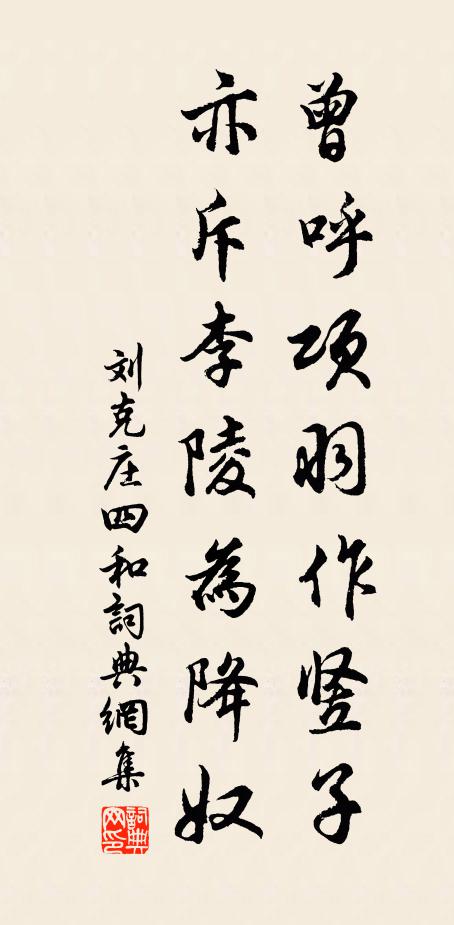 曾呼项羽作竖子
亦斥李陵為降奴
刘克庄四和詞典網集
詞典網印